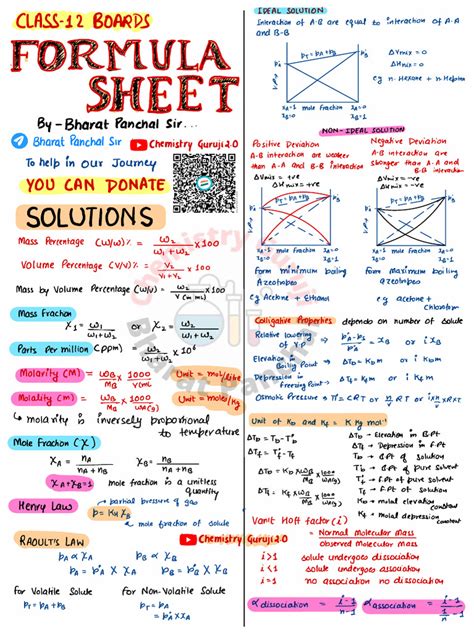 CLASS-12 BOARDS
FORMULA
SHEET
By - Bharat Panchal Sir...
Bharat Panchal Sir
Chemistry Guruji 2.0
To help in our Journey
YOU CAN DONATE
SOLUTIONS
Mass Percentage (w/w)% = w₂/(w₁+w₂) ×100
Volume Percentage (v/v)% = v₂/(v₁+v₂) ×100
Mass by Volume Percentage = w₂/v(in ml) ×100
Mass Fraction
X₁ = w₁/(w₁+w₂) or X₂ = w₂/(w₁+w₂)
Parts Per million (ppm)
Molarity (M) = wB/MB × 1000/v(ml)
Unit = mol/litre
Molality (m) = wB/MB × 1000/wA(g)
Unit = mole/kg
molarity is inversely proportional
to temperature
Mole Fraction (χ)
χA = nA/(nA+nB)
χB = nB/(nA+nB)
χA+χB=1
mole fraction is a unitless
quantity
Henry Law
partial pressure of gas
p = KH χ
mole fraction of solute
RAOULT'S LAW
Chemistry Guruji 2.0
PA ∝ χA
PB ∝ χB
PA = P°A χA
PB = P°B χB
For Volatile Solute
PT = PA + PB
For Non-Volatile Solute
IDEAL SOLUTION
Interaction of A-B are equal to interaction of A-A
and B-B
PT = PA + PB
ΔVmix = 0
ΔHmix = 0
eg n-Hexane + n-Heptane
mole fraction
NON-IDEAL SOLUTION
Positive Deviation
A-B interaction are weaker
than A-A and B-B interaction
ΔVmix = +ve
ΔHmix = +ve
PT = PA + PB
mole fraction
form minimum boiling
Azeotropes
eg Acetone + Ethanol
Negative Deviation
A-B interaction are
stronger than A-A and
B-B interaction
ΔVmix = -ve
ΔHmix = -ve
mole fraction
Form maximum boiling
Azeotropes
eg acetone +
chloroform
Colligative Properties depends on number of solute
Relative lowering
of V.P
Elevation in
Boiling Point
ΔTb = Kb m
or i Kb m
Depression in
Freezing Point
ΔTf = Kf m
or i Kf m
Osmotic Pressure π = CRT
or i CRT
Unit of Kb and Kf = K Kg mol⁻¹
ΔTb = Tb - T°b
ΔTf = T°f - Tf
ΔTb = Kb wB/MB × 1000/wA(g)
ΔTf = Kf wB/MB × 1000/wA(g)
ΔTb → Elevation in B.Pt
ΔTf → Depression in F.Pt
Tb → B.Pt of solution
T°b → B.Pt of pure solvent
Tf → F.Pt of solution
T°f → F.Pt of pure solvent
Kb → molal elevation
constant
Kf → molal depression
constant
Vant Hoff factor (i) = Normal Molecular Mass/observed Molecular Mass
i>1 solute undergoes dissociation
i<1 solute undergoes association
i=1 no association no dissociation
α dissociation = (i-1)/(n-1)